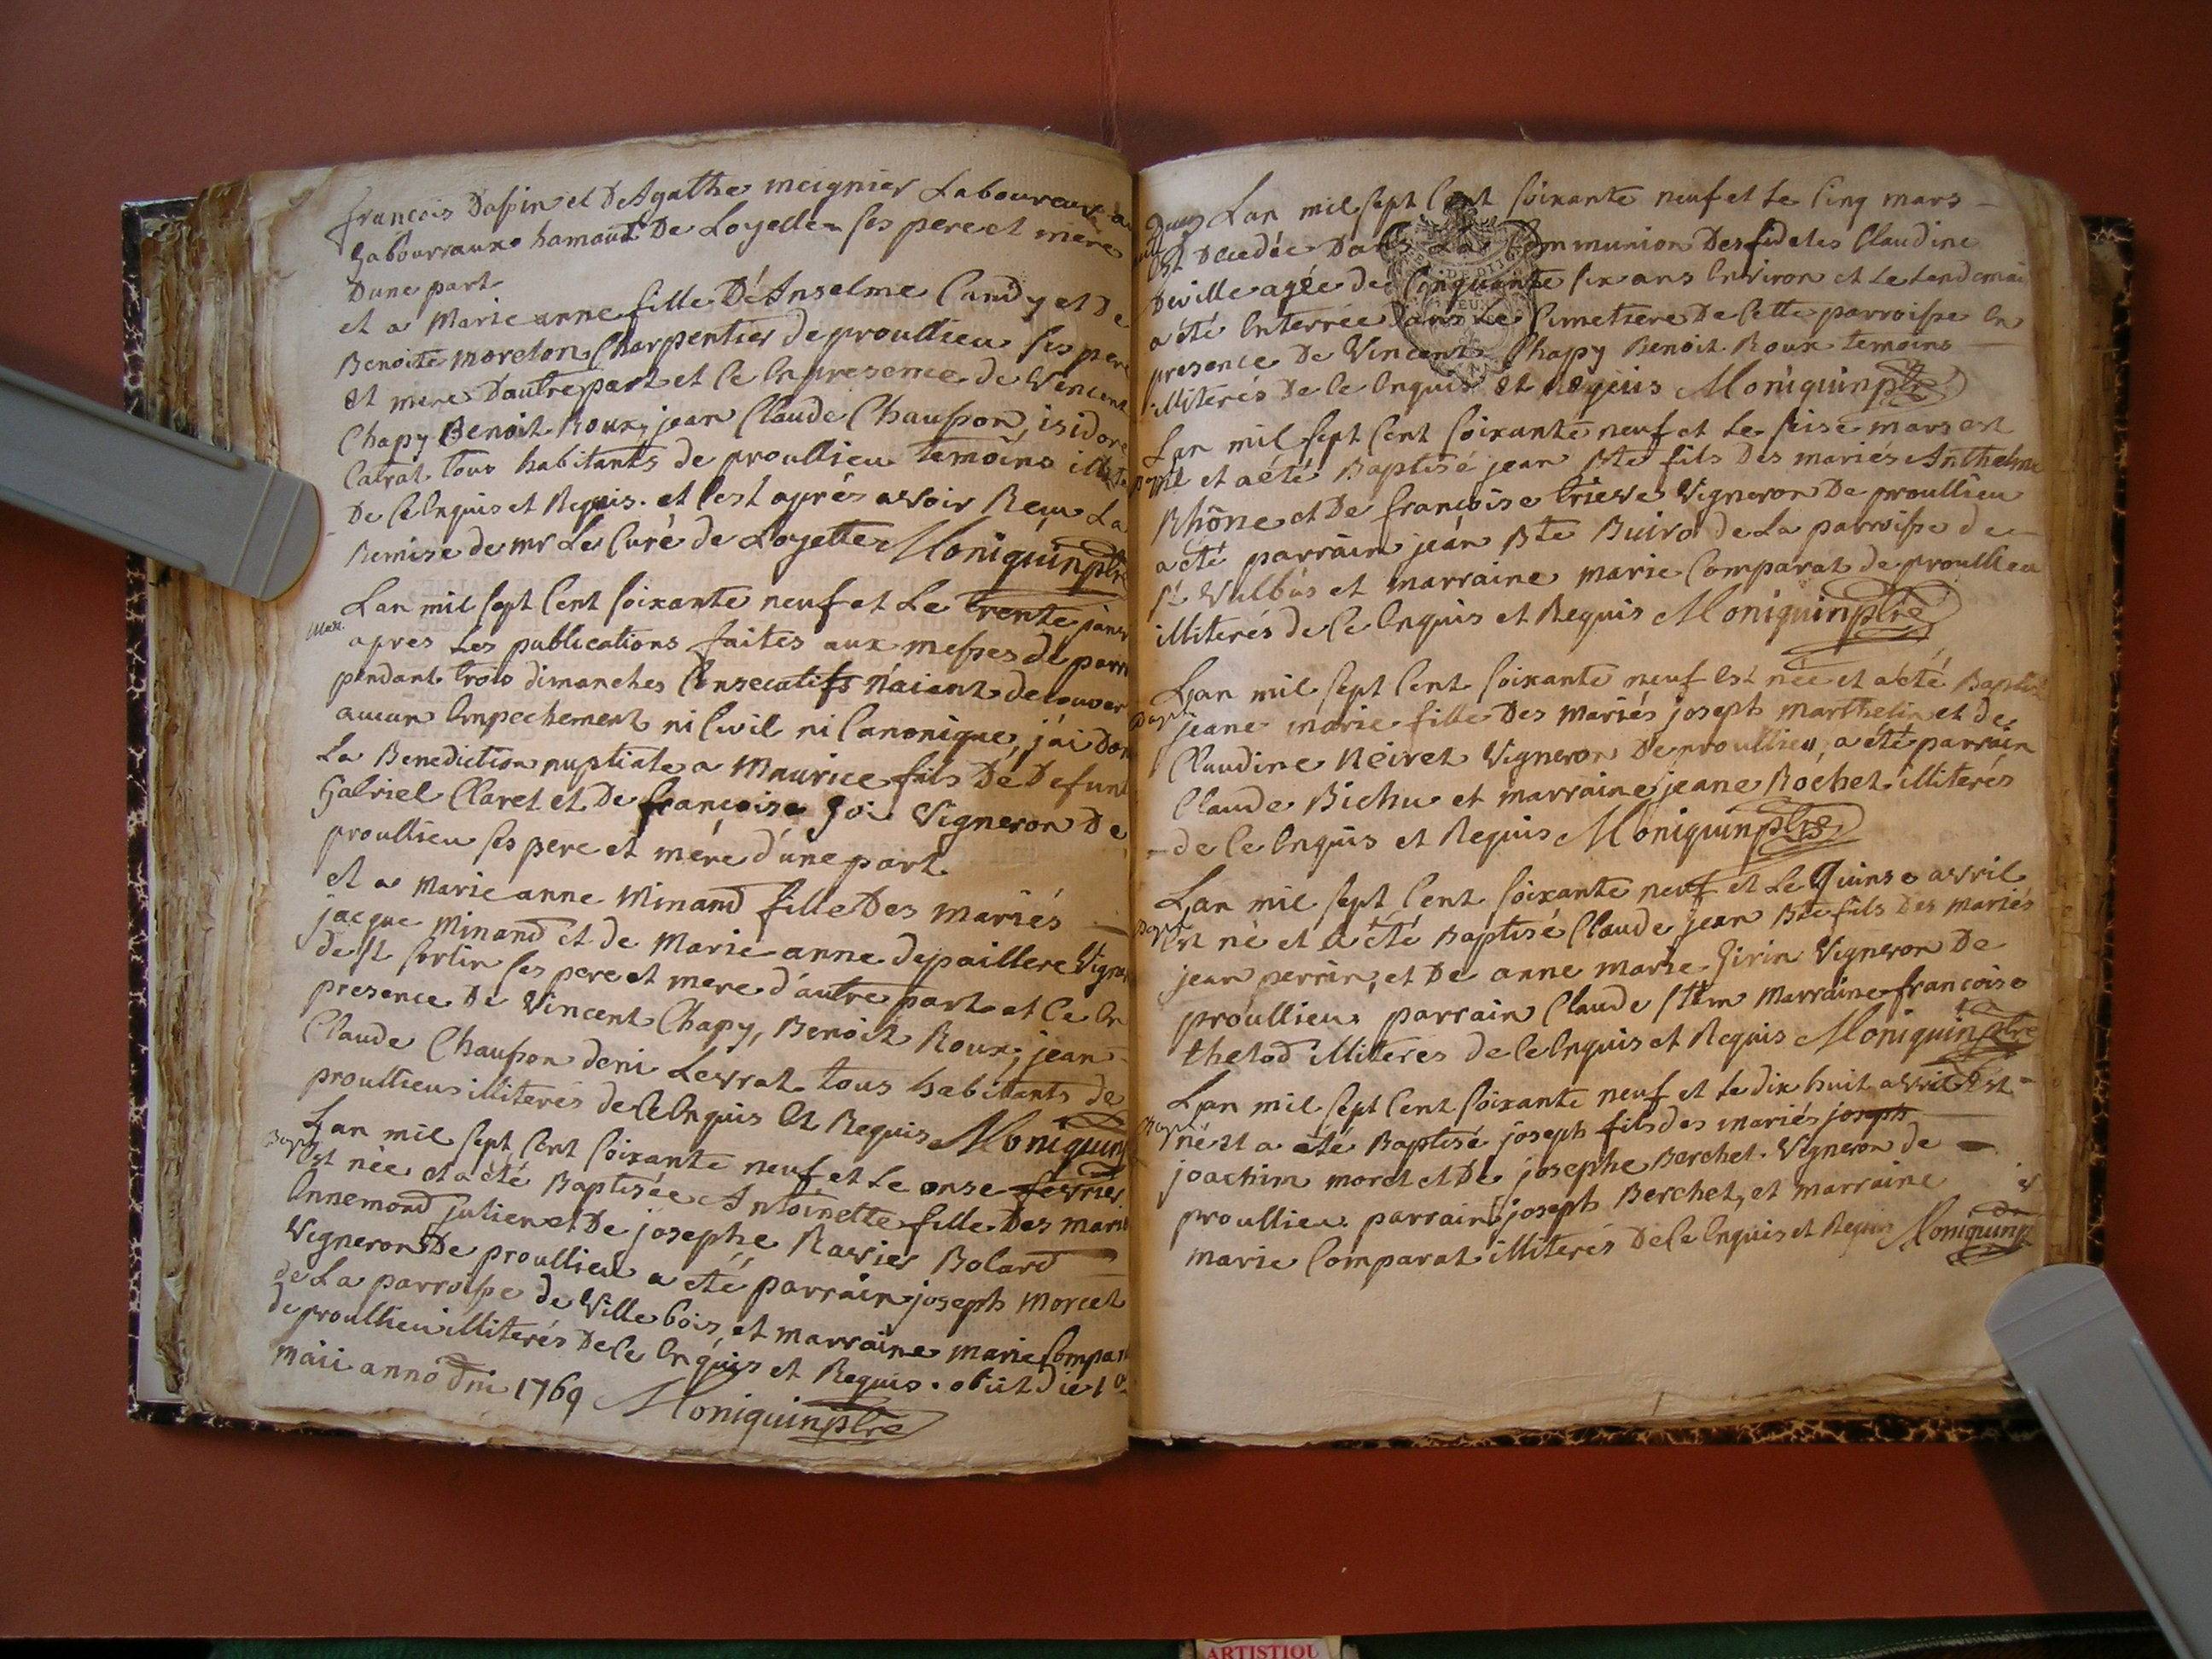 francois Dassin et De Agathe meignier Laboureur a
Gabourraux hamaut De Loyette ses pere et mere
Dune part
et a Marie anne fille D'Anselme Candy et de
Benoite moreton Charpentier de proullieu ses pere
et mere D'autre part et ce en presence de Vencent
Chapy Benoit Roux, jean Claude Chausson, isidore
tous habitants de proullieu temoins
De ce enquis et Requis. et c'est aprés avoir Reçu La
Remise de mr Le Curé de Loyette Moniquin ptre
Mari.
Lan mil sept Cent soixante neuf et Le trente janv
apres Les publications faites aux messes de parr
pendant trois dimanches Consecutifs n'aiant decouver
aucun Empechement ni Civil ni Canonique, j'ai don
La Benediction nuptiale a Maurice fils De Defunt
Gabriel Claret et De françoise Goi Vigneron De
proullieu ses pere et mére d'une part.
et a Marie anne Minand fille Des mariés
jacque Minand et de Marie anne depaillere Vigne
de st sorlin ses pere et mere d'autre part et Ce En
presence De Vincent Chapy, Benoit Roux, jean
Claude Chausson deni Levrat tous habitants de
proullieu illiterés de ce Enquis Et Requis Moniquin
Bapt
Lan mil sept Cent soixante neuf et Le onse fevrier
Est née et a été Baptisée Antoinette fille Des marié
Ennemond julien et De josephe Ravier Bolard
Vigneron De proullieu a été parrain joseph Morcel
de La parroisse de Villebois, et marraine marie Compar
de proullieu illiterés De Ce Enquis et Requis. obiit die 1a
maii anno dni 1769 Moniquin ptre
Lan mil sept Cent soixante neuf et Le Cinq mars
Est Decedée Dans La Communion Des fideles Claudine
Deville agée de Cinquante six ans Environ et Le Lendemai
a été Enterrée Dans Le Cimetiere De Cette parroisse En
presence De Vincent Chapy Benoit Roux temoins
illiterés De Ce Enquis et Requis Moniquin ptre
Lan mil sept Cent soixante neuf et Le seise mars est
né et a été Baptisé jean Bte fils Des mariés Anthelme
Rhône et De françoise trieve Vigneron De proullieu
a été parrain jean Bte Buiro de La parroisse de
st Vulbas et marraine marie Comparat de proullieu
illiterés de Ce Enquis et Requis Moniquin ptre
Bapt
Lan mil sept Cent soixante neuf est née et a été Baptisé
jeane marie fille Des mariés joseph marthelin et de
Claudine Neiret Vigneron De proullieu, a été parrain
Claude Bichu et marraine jeane Rochet illiterés
de Ce Enquis et Requis Moniquin ptre
Bapt
Lan mil sept Cent soixante neuf et Le Quinse avril
Est né et a été Baptisé Claude jean Bte fils Des mariés
jean perrin, et De anne marie Girin Vigneron De
proullieu parrain Claude Marraine francoise
thelod illiteres de Ce Enquis et Requis Moniquin ptre
Bapt
Lan mil sept Cent soixante neuf et Le dix huit avril Est
né et a été Baptisé joseph fils des mariés joseph
joachim moret et De josephe Berchet Vigneron de
proullieu parrain joseph Berchet, et marraine
marie Comparat illiterés De Ce Enquis et Requis Moniquin p
ARTISTIQU